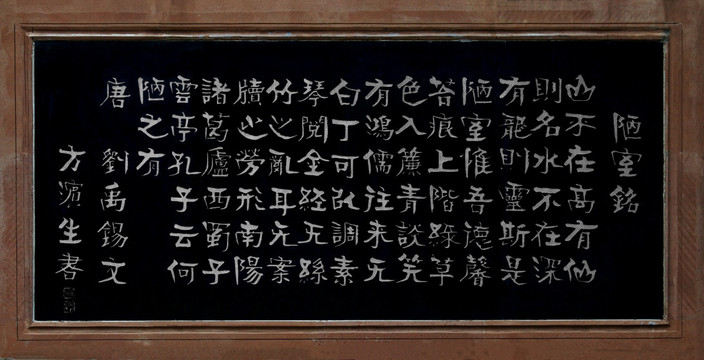 陋室銘
山不在高有仙
則名水不在深
有龍則靈斯是
陋室惟吾德馨
苔痕上階綠草
色入簾青談笑
有鴻儒往来无
白丁可以調素
琴閱金經无絲
竹之亂耳无案
牘之勞形南陽
諸葛廬西蜀子
雲亭孔子云何
陋之有
唐 劉禹錫文
方濱生書